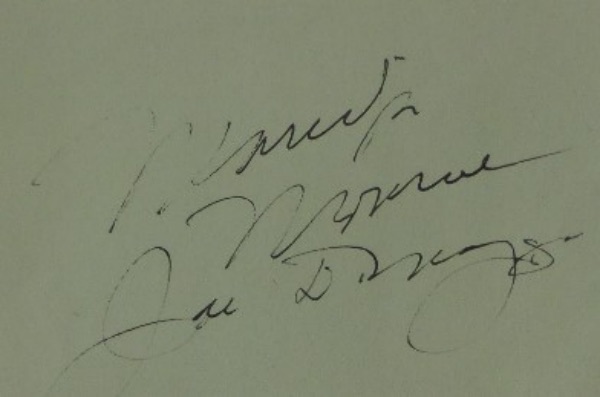 Marilyn
Monroe
Joe DiMaggio